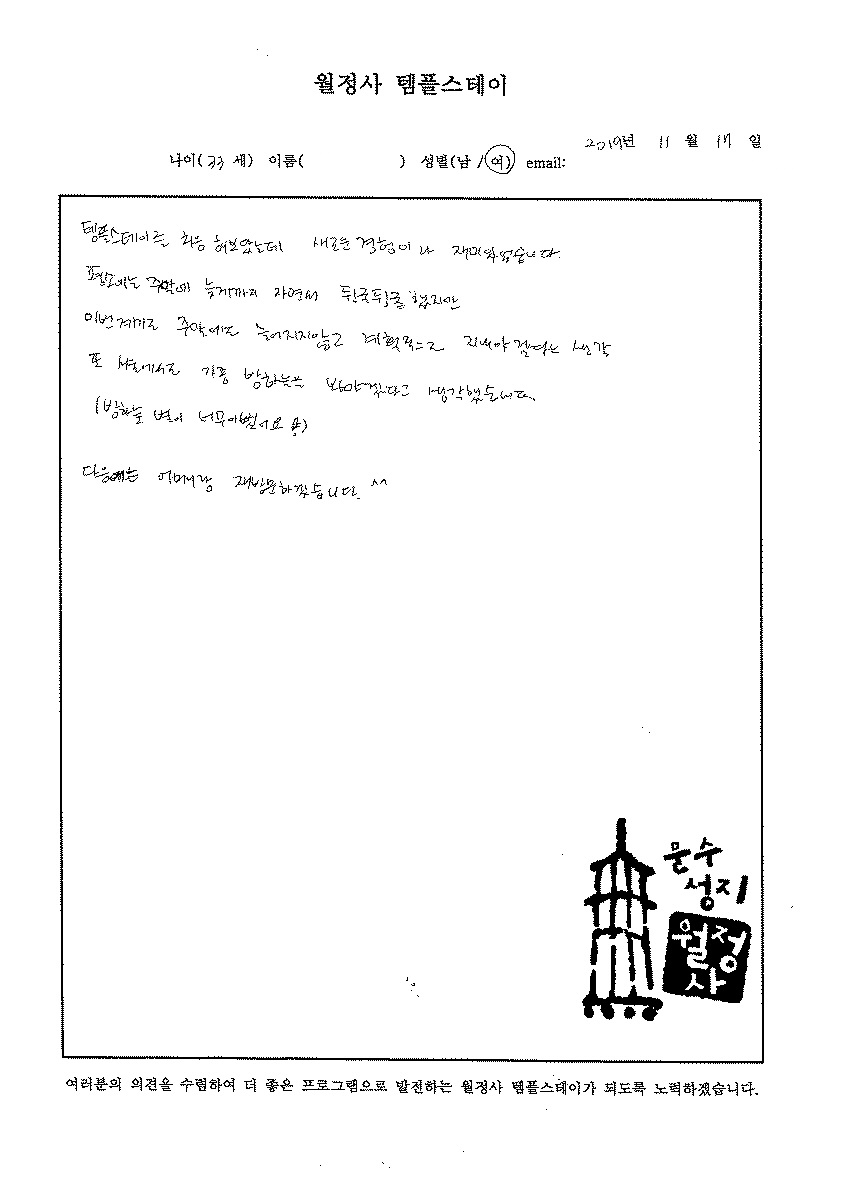 월정사 템플스테이
2019년 11 월 17 일
나이(33 세) 이름( ) 성별(남 / 여) email:
템플스테이를 처음 해보았는데 새로운 경험이라 재미있었습니다.
평소에는 주말에 늦게까지 자면서 뒹굴뒹굴 했지만
이번계기로 주말에도 늘어지지않고 계획적으로 지내야 겠다는 생각
또 서울에서도 가끔 밤하늘을 봐야겠다고 생각했습니다.
(밤하늘 별이 너무이뻤어요)
다음에는 어머니랑 재방문하겠습니다. ^^
문수
성지
월정
사
여러분의 의견을 수렴하여 더 좋은 프로그램으로 발전하는 월정사 템플스테이가 되도록 노력하겠습니다.